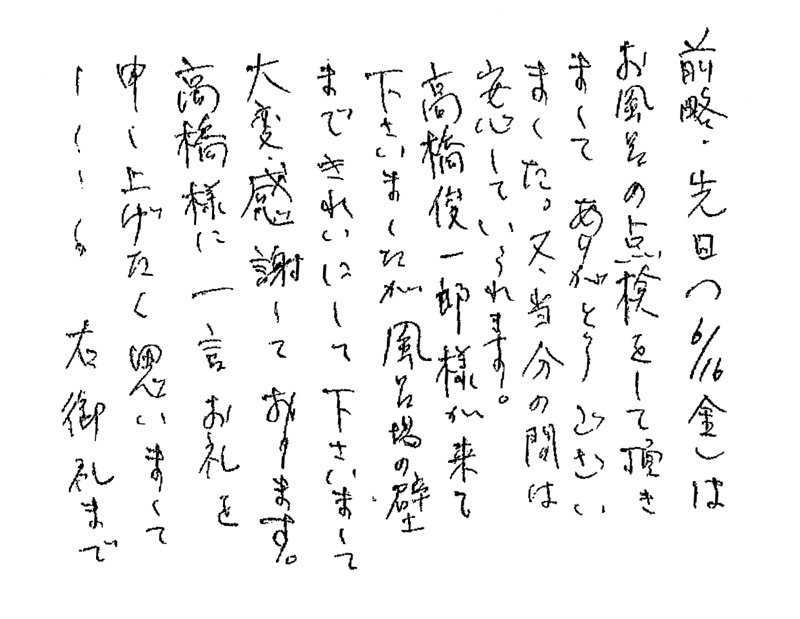 前略、先日（6/16金）は
お風呂の点検をして頂き
ましてありがとうございい
ました。又、当分の間は
安心していられます。
高橋俊一郎様が来て
下さいましたが風呂場の壁
まできれいにして下さいまして
大変感謝しております。
高橋様に一言お礼を
申し上げたく思いまして
右御礼まで